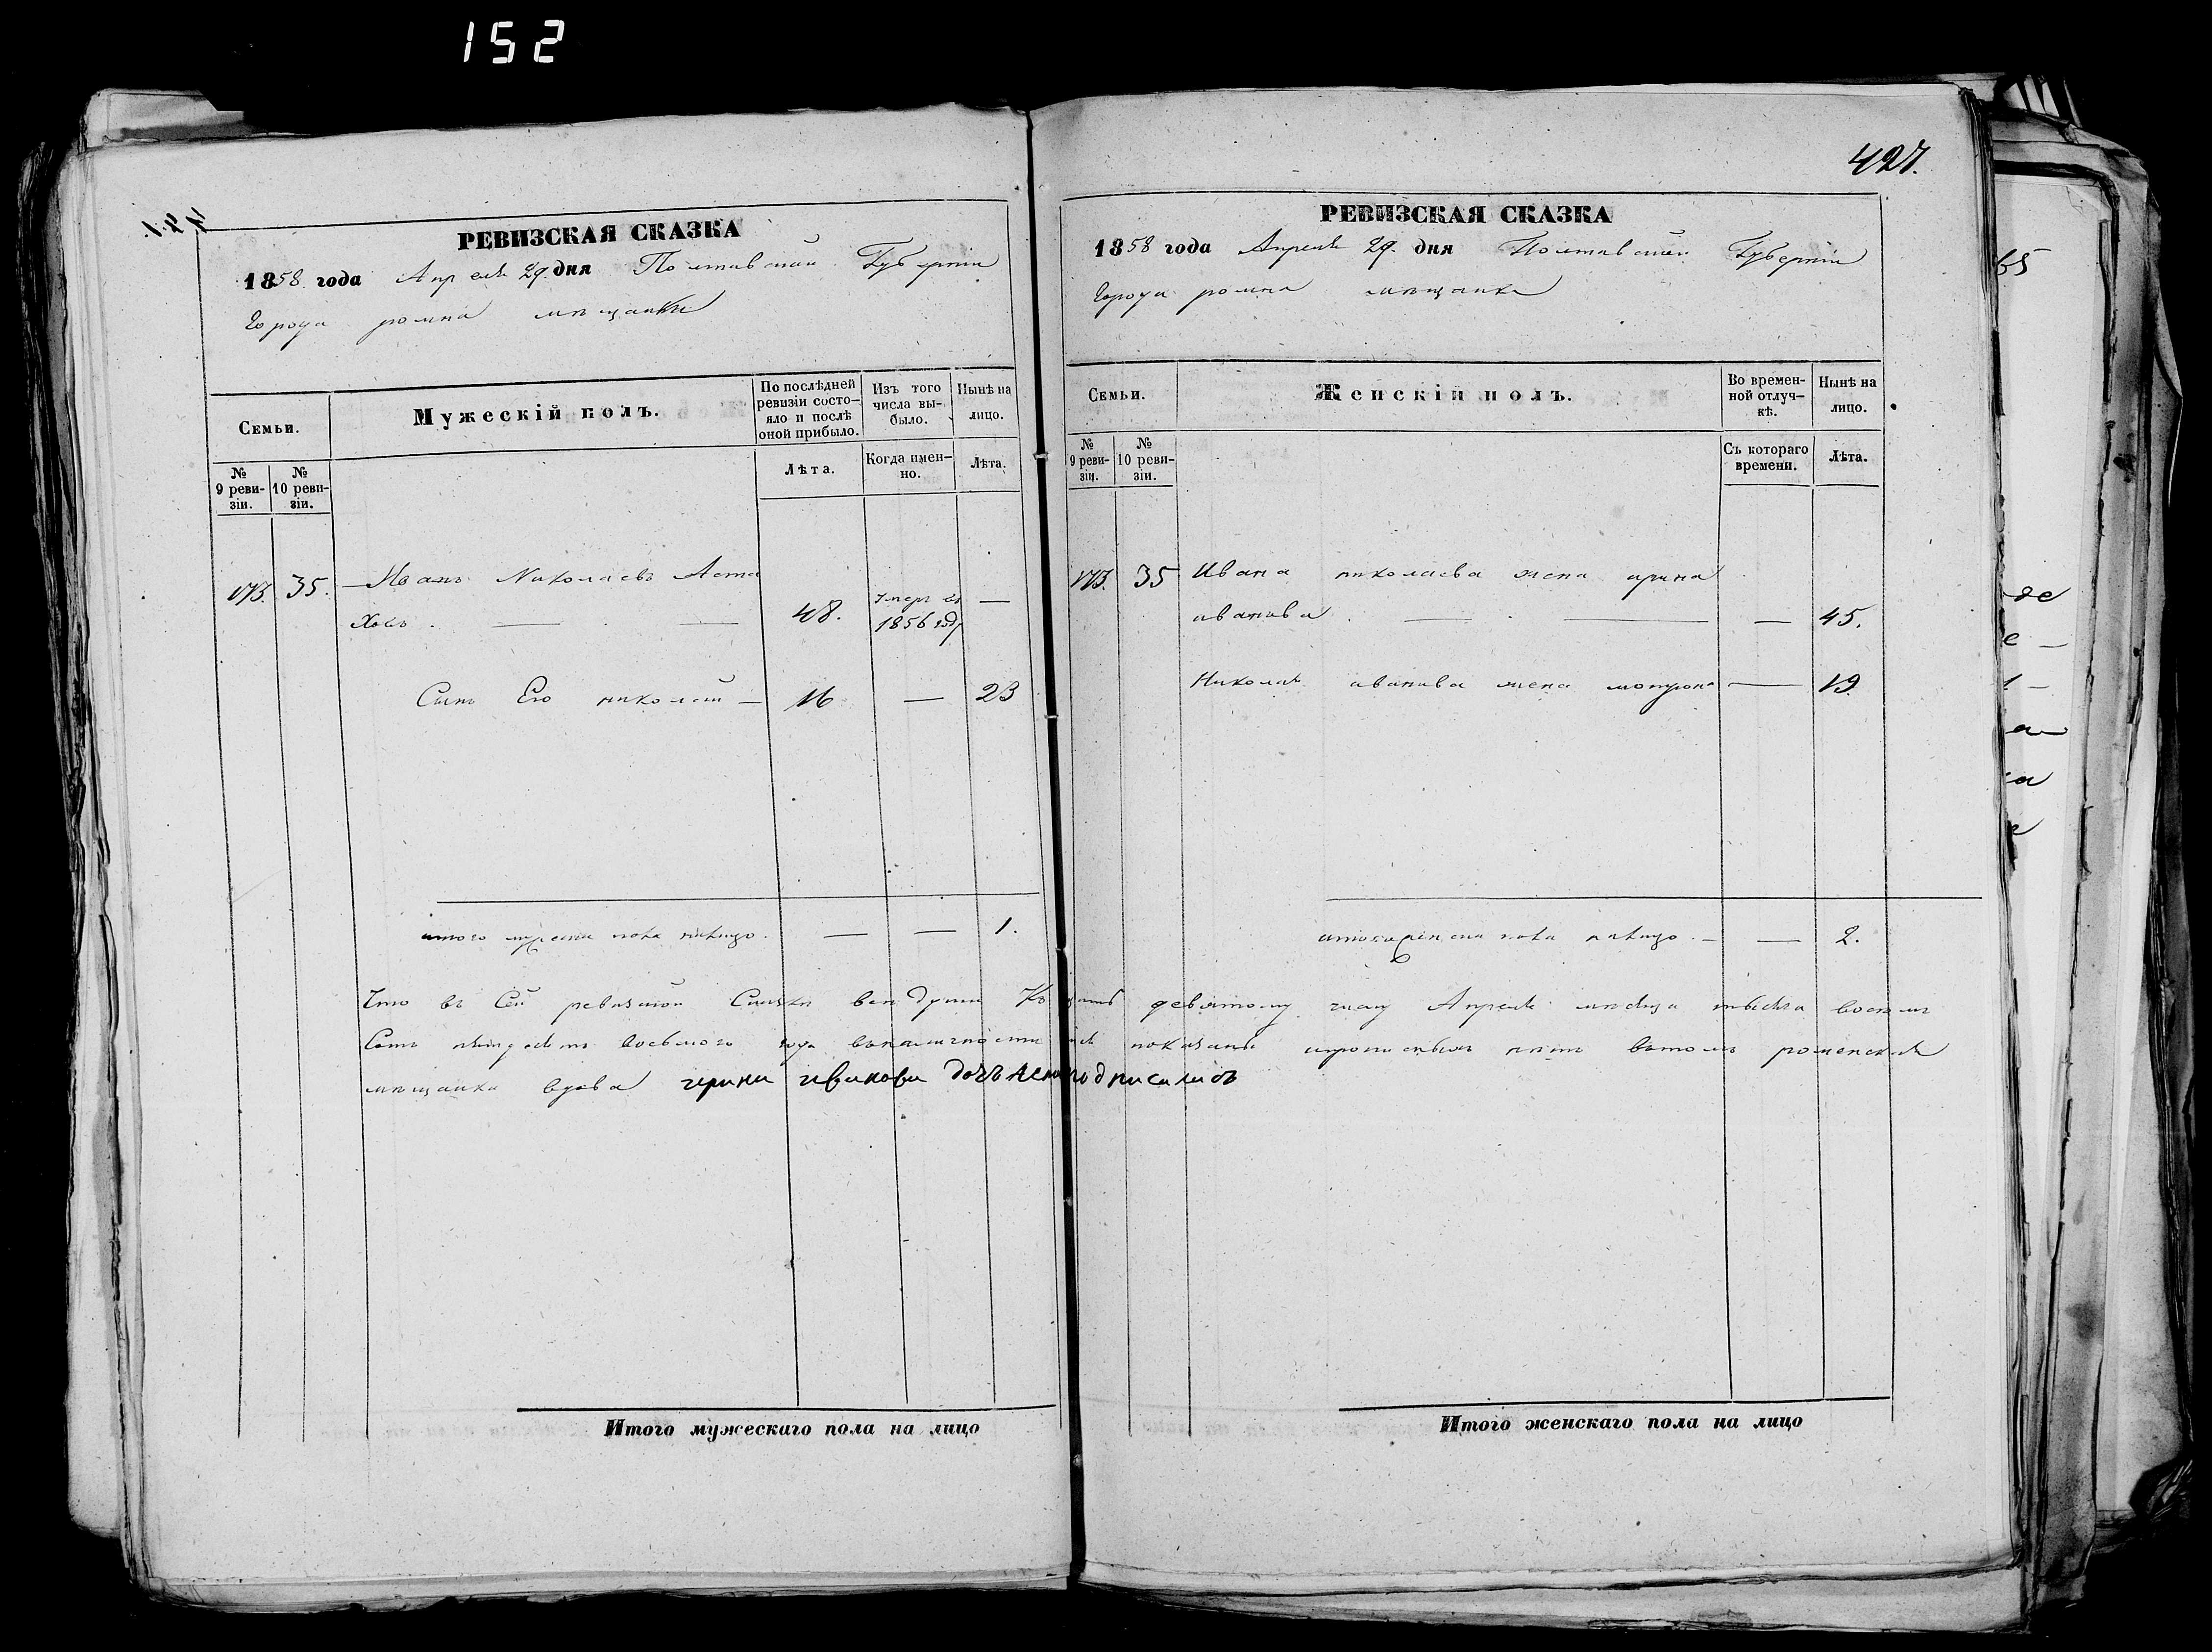 152
427.
РЕВИЗСКАЯ СКАЗКА
1858 года Апреля 29 дня Полтавской Губернии
Города ромна мещанки
Семьи.
Мужескій полъ.
По послѣдней ревизіи состо-
яло и послѣ оной прибыло.
Изъ того числа вы-
было.
Нынѣ на лицо.
№ 9 реви-
зіи.
№ 10 реви-
зіи.
Лѣта.
Когда имен-
но.
Лѣта.
173. 35. Иванъ Николаевъ Аста
ховъ. — — 48. 1856 году —
Сынъ Его николай — 16 — 23
итого мужеска пола налицо. — — 1.
РЕВИЗСКАЯ СКАЗКА
1858 года Апреля 29 дня Полтавской Губернии
Города ромна мѣщанка
Семьи.
Женскій полъ.
Во времен-
ной отлуч-
кѣ.
Нынѣ на лицо.
№ 9 реви-
зіи.
№ 10 реви-
зіи.
Съ котораго времени.
Лѣта.
173. 35 Ивана николаева жена ирина
иванова. — — — 45.
Николая иванова жена мотрона — 19
итого женска пола налицо. — — 2.
Что въ Сей ревизкой Сказки все души Къ девятому числу Апреля месяца тысяча восемь
Сотъ пятдесятъ восьмого года показаны нетъ вътомъ роменская
мещанка вдова ирина иванова дочь подписалась
Итого мужескаго пола на лицо
Итого женскаго пола на лицо